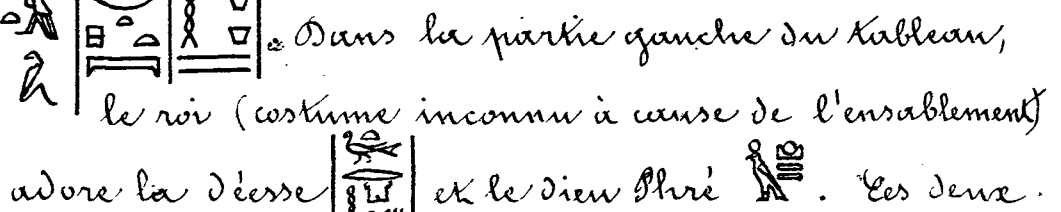 . Dans la partie gauche du tableau,
le roi (costume inconnu à cause de l'ensablement)
adore la déesse et le dieu Phré . Ces deux